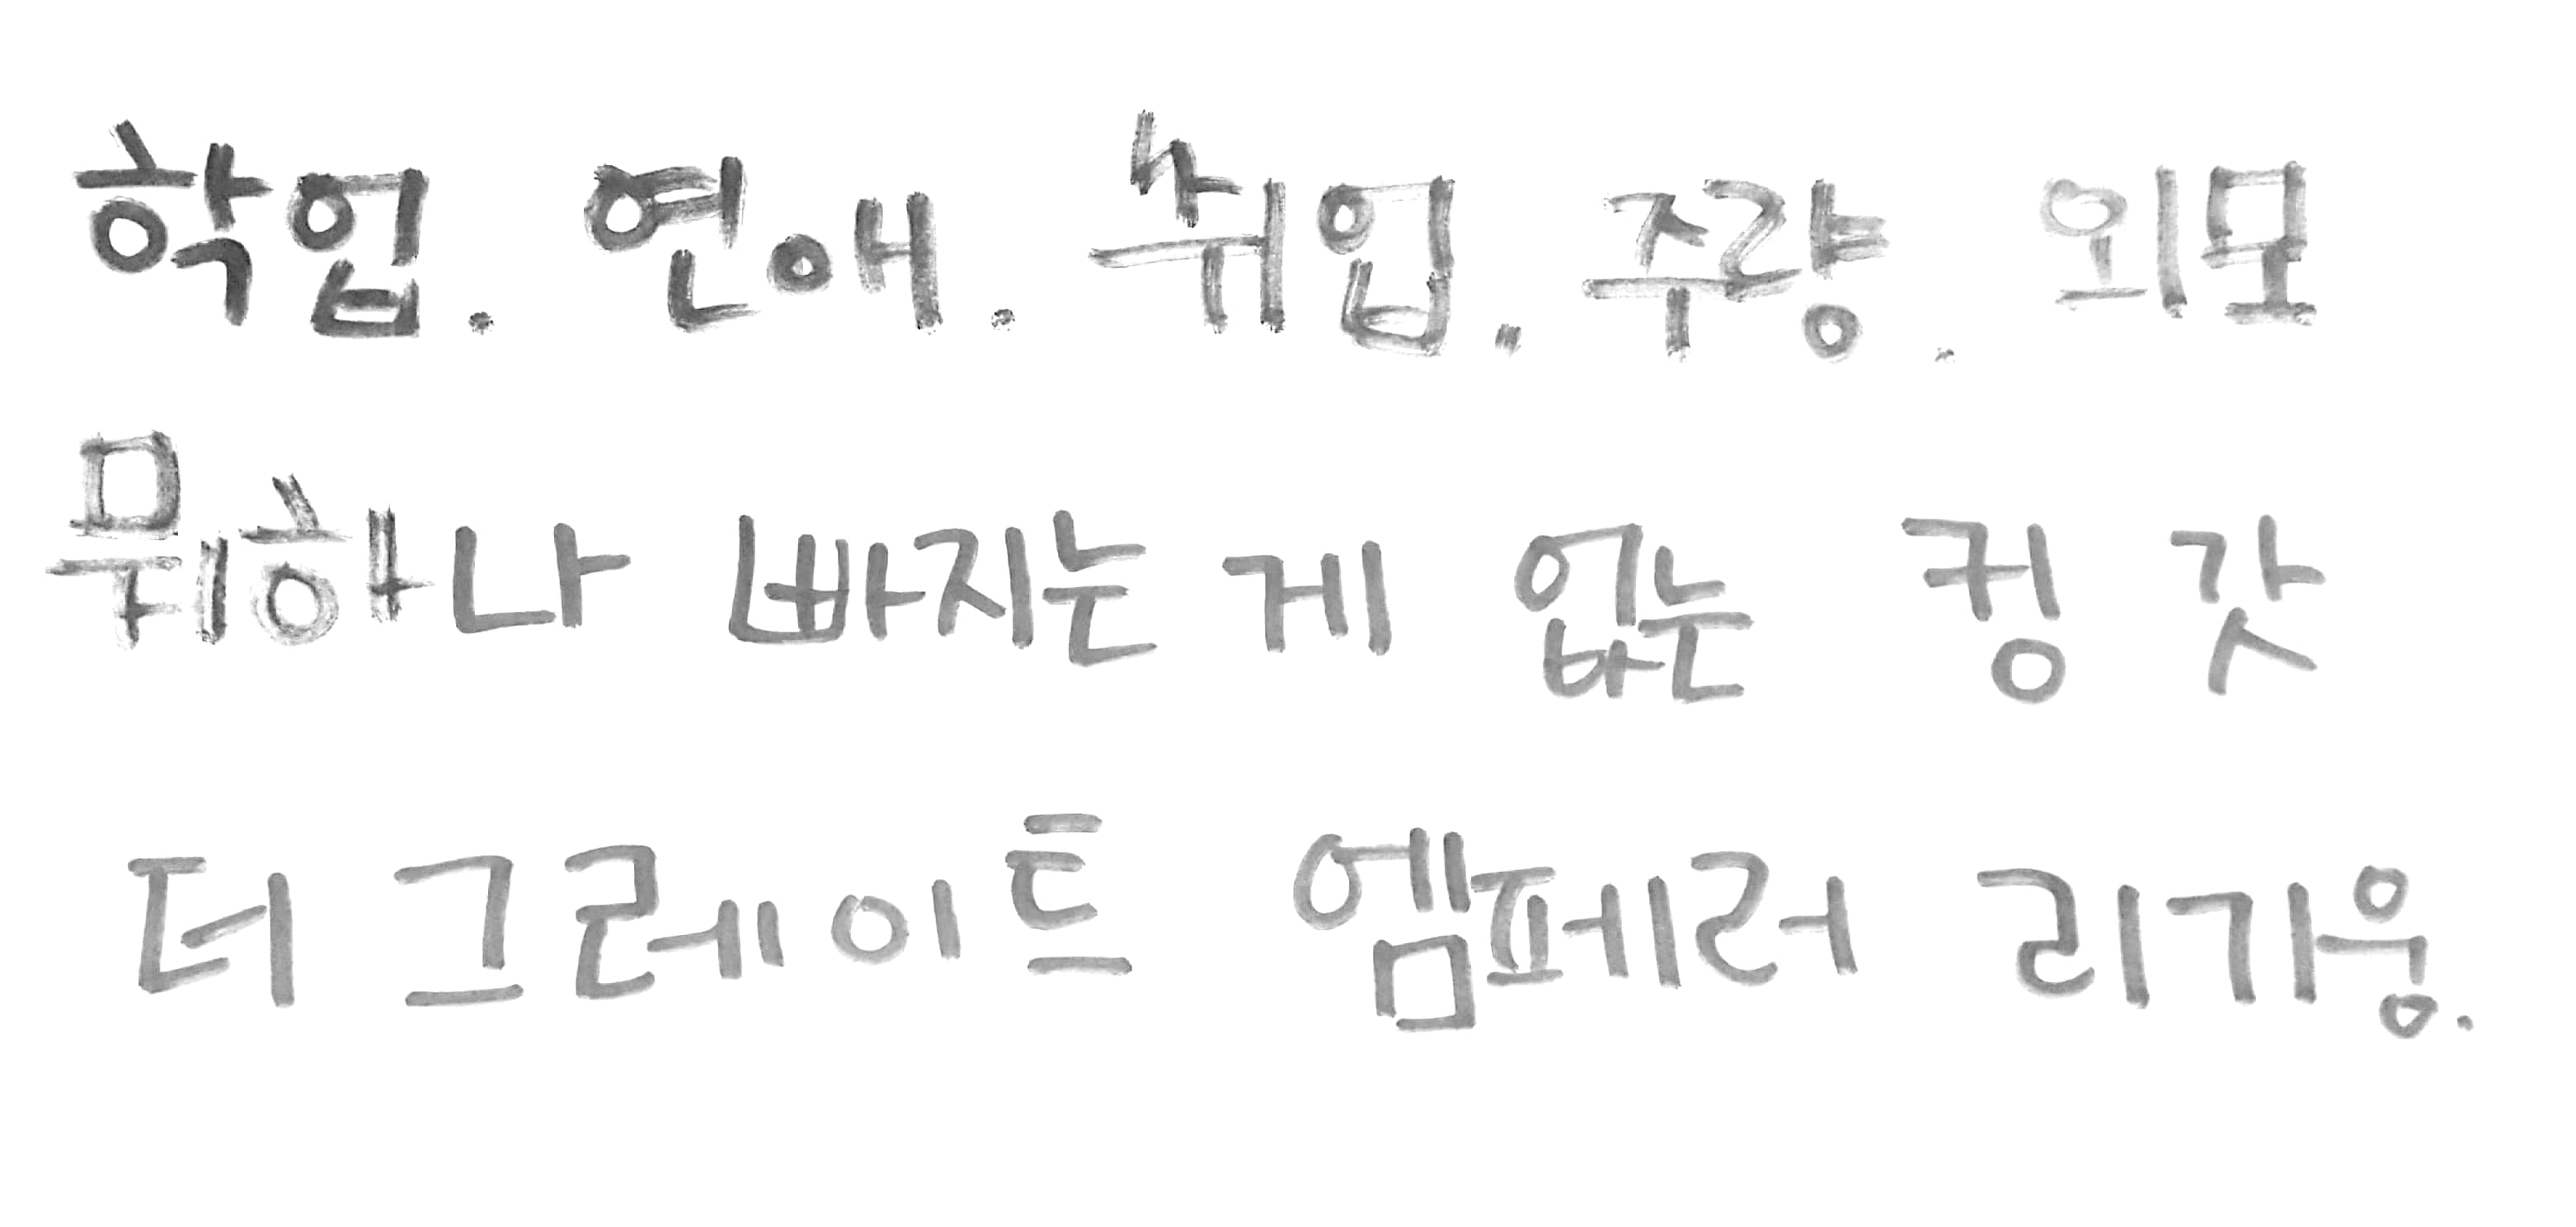 학업. 연애. 취업. 주량. 외모
뭐하나 빠지는 게 없는 킹 갓
더 그레이트 엠페러 리기웅.